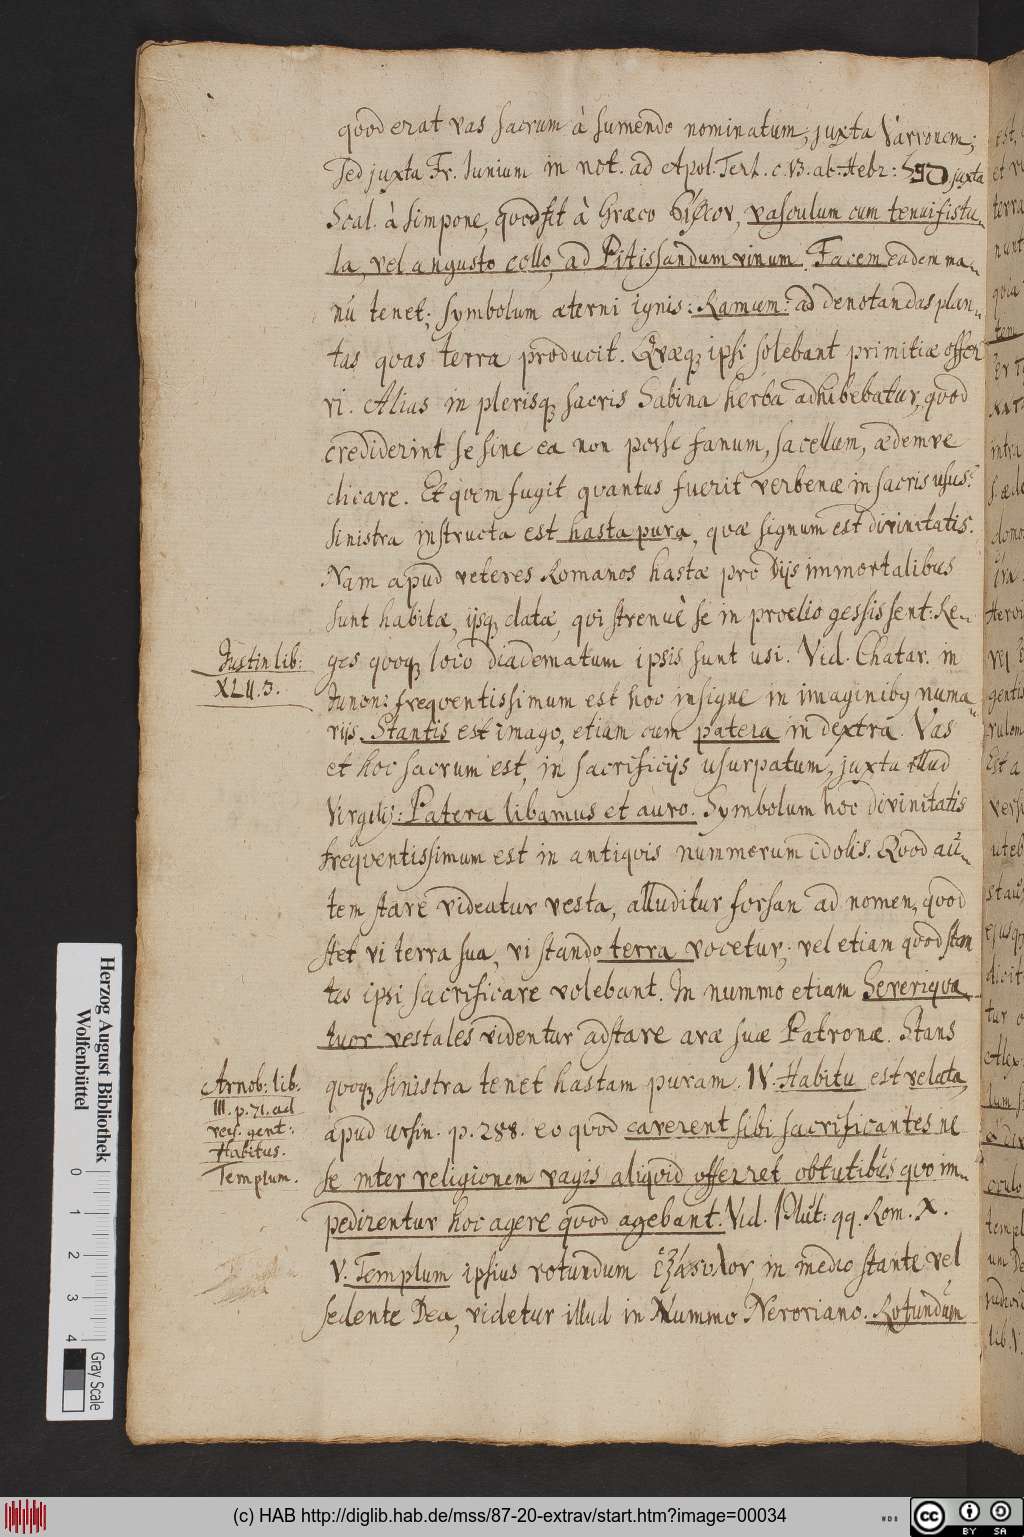 quod erat vas sacrum à sumendo nominatum, juxta Varronem;
Sed juxta Fr. Junium in not. ad Apol. Tert. c. 13. ab Hebr: ספל juxta
Scal. à simpone, quod fit à Græco σίφων, vasculum cum tenui fistu-
la, vel angusto collo, ad Pitissandum vinum. Facem eadem ma-
nú tenet, symbolum æterni ignis: Ramum: ad denotandas plan-
tas quas terra producit. Qvæq; ipsi solebant primitiæ offer
ri. Alias in plerisq; sacris Sabina herba adhibebatur, quod
crediderint se sine ea non posse fanum, sacellum, ædemve
dicare. Et quem fugit quantus fuerit verbenæ in sacris usus:
Sinistra instructa est hasta pura, quæ signum est divinitatis.
Nam apud veteres Romanos hastæ pro Dijs immortalibus
sunt habitæ, ijsq; datæ, qui strenuè se in proelio gessissent: Re-
Justin lib:
XLII. 3.
ges quoq; loco diadematum ipsis sunt usi. Vid. Chatar. in
Junon: freqventissimum est hoc insigne in imaginibq numa-
rijs. Stantis est imago, etiam cum patera in dextrâ. Vas
et hoc sacrum est, in sacrificijs usurpatum, juxta illud
Virgilij: Patera libamus et auro. Symbolum hoc divinitatis
freqventissimum est in antiqvis nummorum idolis. Qvod aú-
tem stare videatur vesta, alluditur forsan ad nomen, quod
stet vi terra sua, vi stando terra vocetur; vel etiam quod stan
tes ipsi sacrificare volebant. In nummo etiam Severi qva-
tuor vestales videntur adstare aræ suæ Patronæ. Stans
Arnob: lib.
III. p. 71. ad
vers. gent:
Habitus.
Templum.
quoq; sinistra tenet hastam puram. IV. Habitu est velata,
apud Ursin. p. 288. eo quod caverent sibi sacrificantes ne
se inter religionem vagis aliquid offerret obtutibús quo im-
pedirentur hoc agere quod agebant. Vid. Plút: qq. Rom. X.
V. Templum ipsius rotundum in medio stante vel
sedente Dea, videtur illud in Nummo Neroriano. Rotundúm
Herzog August Bibliothek
Wolfenbüttel
0 1 2 3 4
Gray Scale
(c) HAB http://diglib.hab.de/mss/87-20-extrav/start.htm?image=00034
cc BY SA